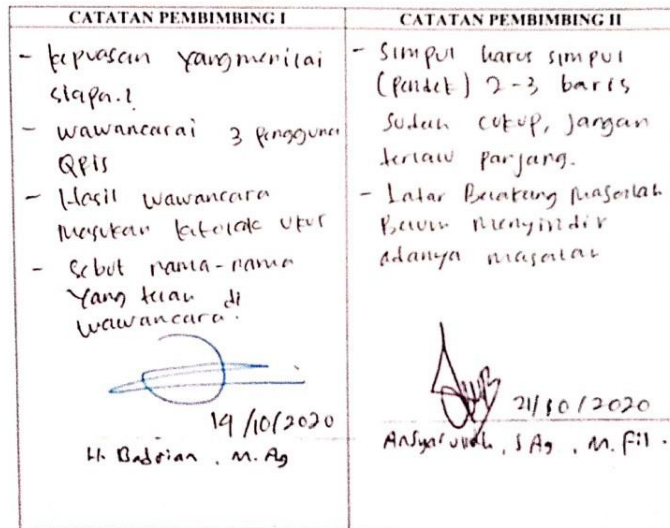 CATATAN PEMBIMBING I
- kepuasan yang menilai
siapa.?
- wawancarai 3 pengguna
QRIS
- Hasil wawancara
masukan ketolak ukur
- Sebut nama-nama
yang telah di
wawancara.
19/10/2020
H. Badrian, M.Ag
CATATAN PEMBIMBING II
- Simpul harus simpul
(pendek) 2-3 baris
sudah cukup, jangan
terlalu panjang.
- Latar Belakang Masalah
Belum menyindir
adanya masalah
21/10/2020
Ansyarullah, S Ag, M. Fil.